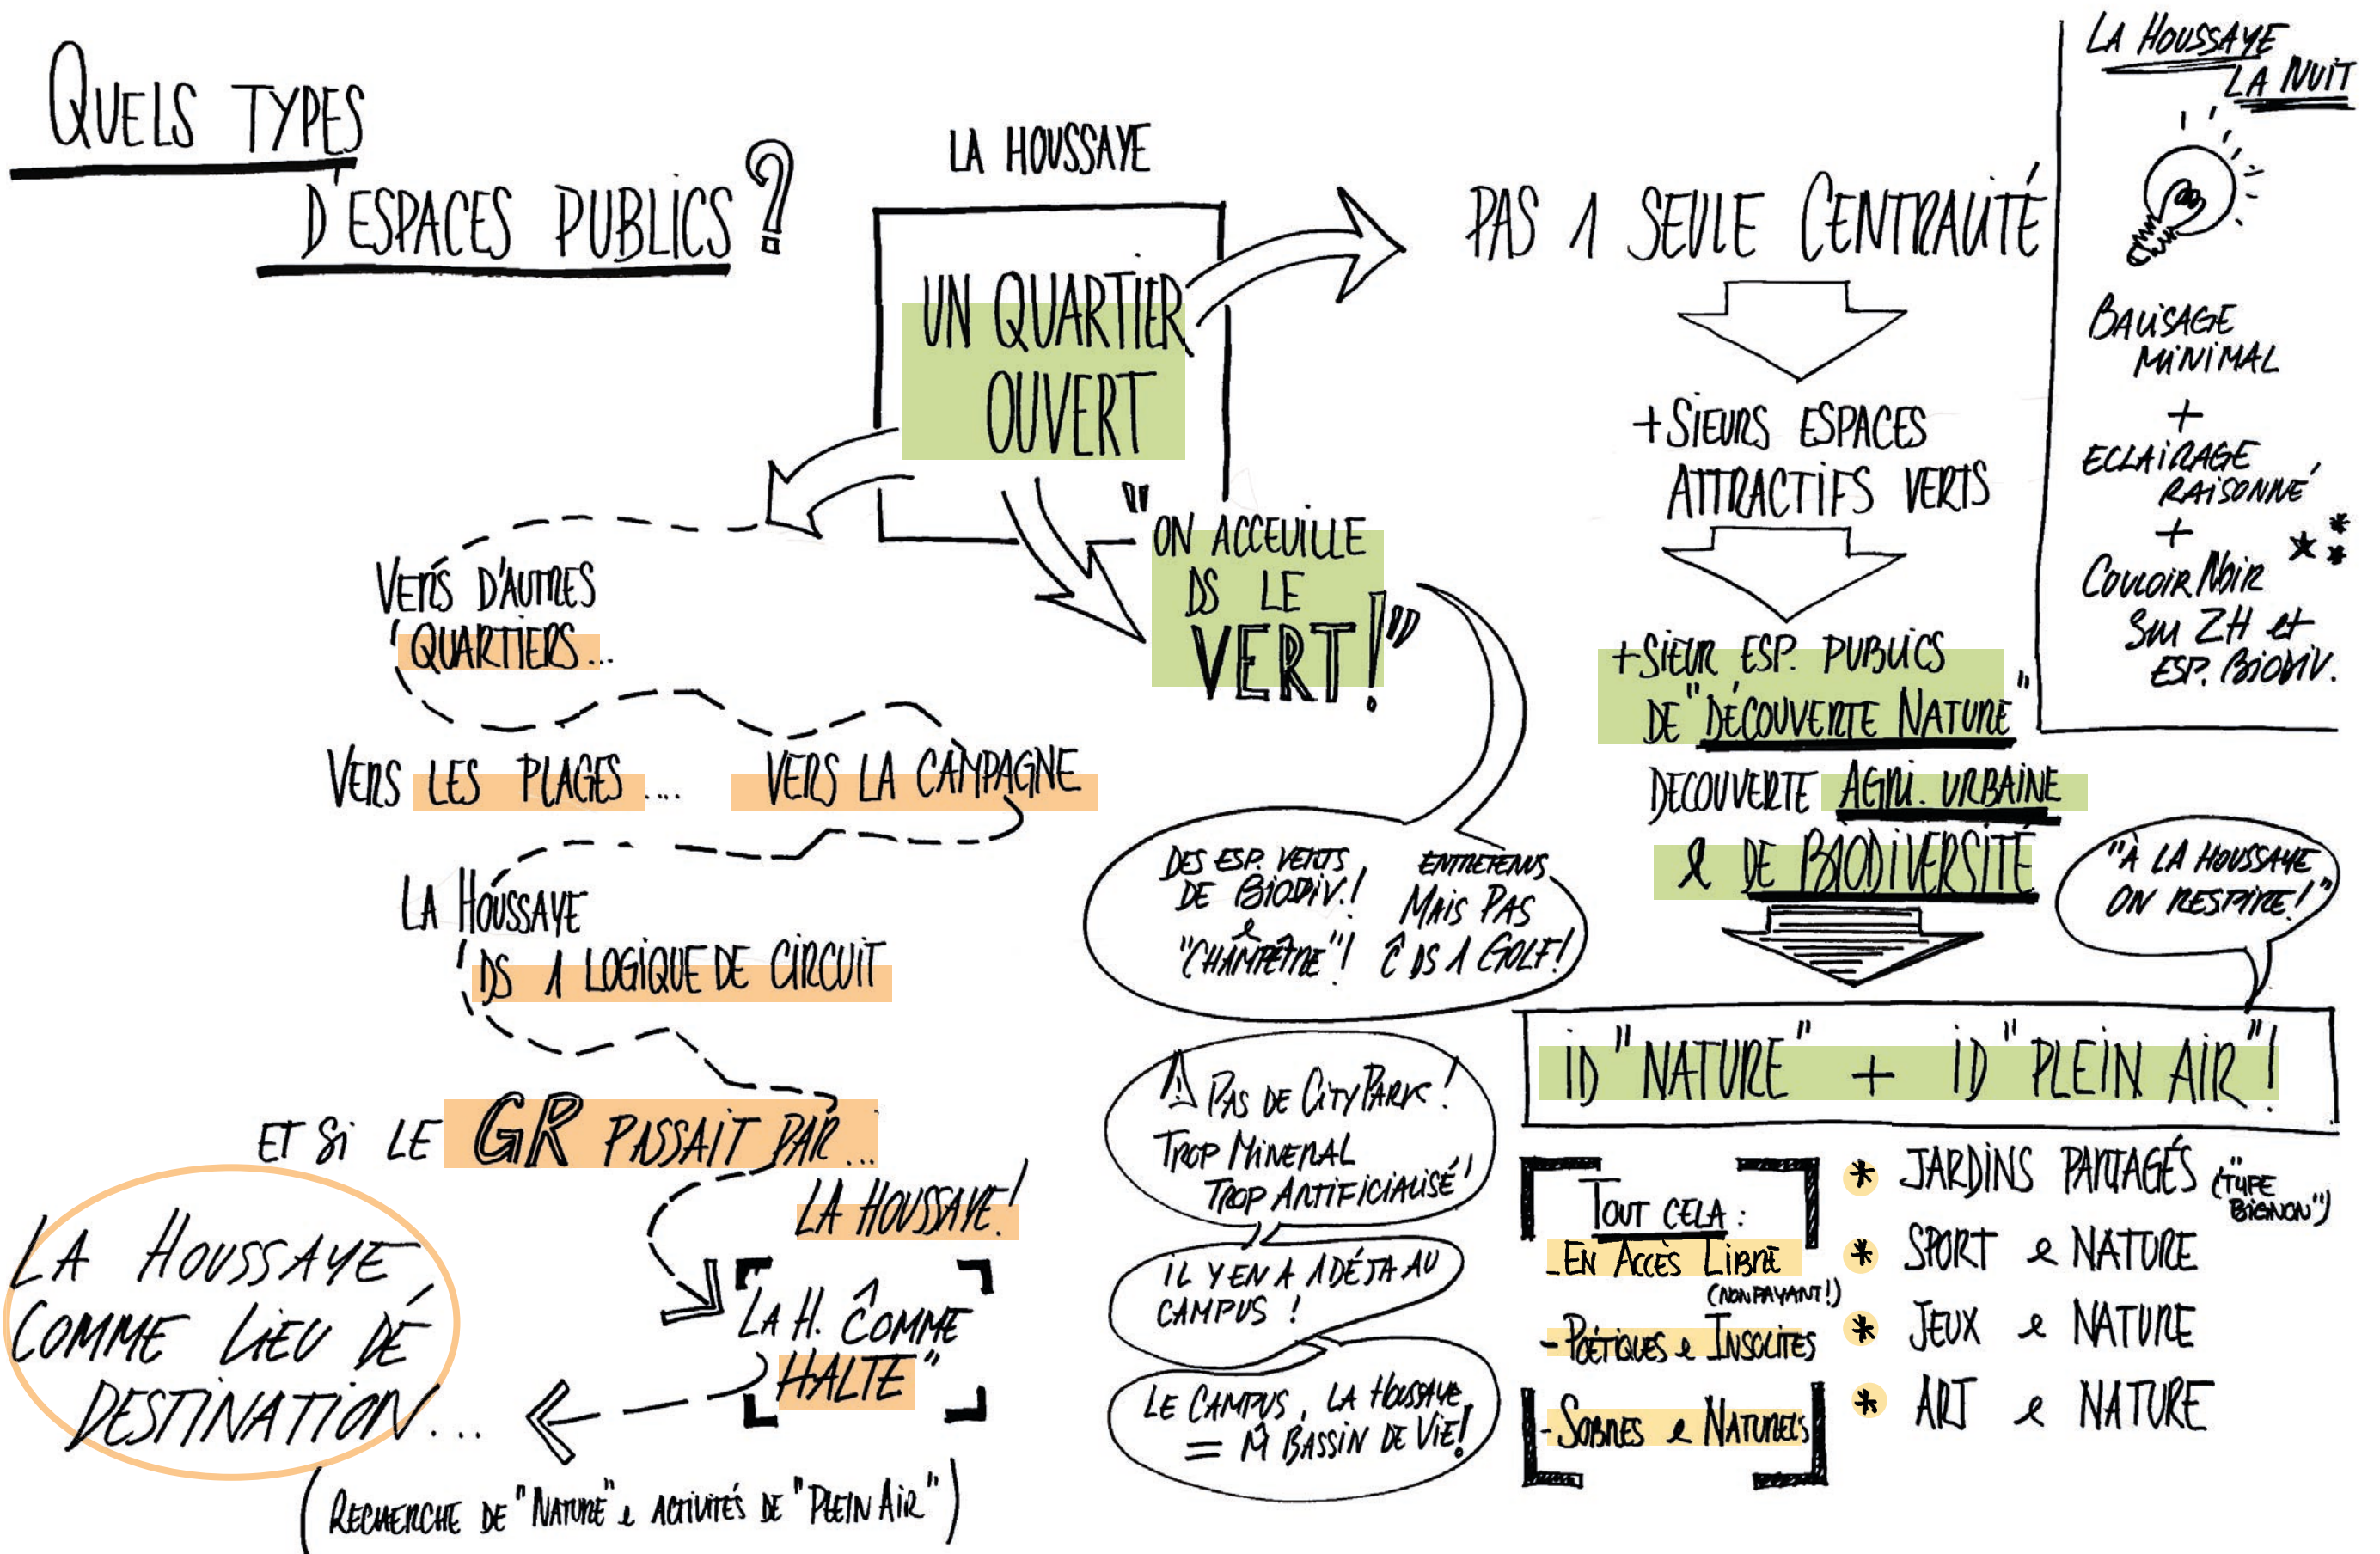 QUELS TYPES
D'ESPACES PUBLICS ?
LA HOUSSAYE
UN QUARTIER
OUVERT
"ON ACCEUILLE
DS LE
VERT!"
VERS D'AUTRES
QUARTIERS...
VERS LES PLAGES.... VERS LA CAMPAGNE
LA HOUSSAYE
DS 1 LOGIQUE DE CIRCUIT
ET Si LE GR PASSAIT PAR...
LA HOUSSAYE!
"LA H. COMME
HALTE"
LA HOUSSAYE
COMME LIEU DE
DESTINATION...
(RECHERCHE DE "NATURE" & ACTIVITÉS DE "PLEIN AIR")
PAS 1 SEULE CENTRALITÉ
+SIEURS ESPACES
ATTRACTIFS VERTS
+SIEUR ESP. PUBLICS
DE "DÉCOUVERTE NATURE"
DECOUVERTE AGRI. URBAINE
& DE BIODIVERSITÉ
"À LA HOUSSAYE
ON RESPIRE!"
ID "NATURE" + ID "PLEIN AIR"!
DES ESP. VERTS
DE BIODIV.!
&
"CHAMPÊTRE"!
ENTRETENUS
MAIS PAS
Ĉ DS 1 GOLF!
⚠ PAS DE CITY PARK!
TROP MINERAL
TROP ARTIFICIALISÉ!
IL Y EN A 1 DÉJA AU
CAMPUS !
LE CAMPUS, LA HOUSSAYE
= M̂ BASSIN DE VIE!
TOUT CELA :
- EN ACCÈS LIBRE
(NON PAYANT!)
- POÉTIQUES & INSOLITES
- SOBRES & NATURELS
* JARDINS PARTAGÉS (TYPE
BIGNON")
* SPORT & NATURE
* JEUX & NATURE
* ART & NATURE
LA HOUSSAYE
LA NUIT
BALISAGE
MINIMAL
+
ECLAIRAGE
RAISONNÉ
+
COULOIR NOIR
SUR ZH et
ESP. BIODIV.